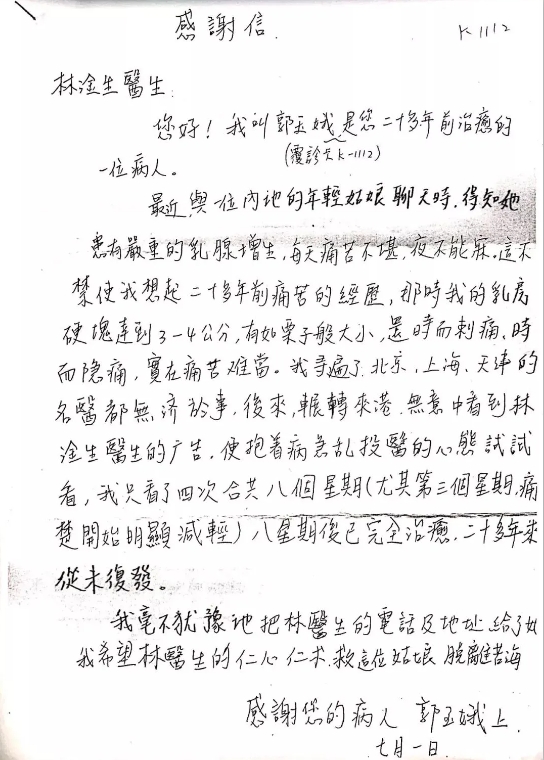 感謝信
K 1112
林淦生醫生:
您好！我叫郭玉娥,是您二十多年前治癒的
(覆診卡K-1112)
一位病人。
最近,與一位內地的年輕姑娘聊天時,得知她
患有嚴重的乳腺增生,每天痛苦不堪,夜不能寐,這不
禁使我想起二十多年前痛苦的經歷,那時我的乳房
硬塊達到3-4公分,有如栗子般大小,還時而刺痛,時
而隐痛,實在痛苦难當。我寻遍了北京、上海、天津的
名醫都無济於事,後來,輾轉來港,無意中看到林
淦生醫生的广告,便抱着病急乱投醫的心態試試
看,我只看了四次合共八個星期(尤其第三個星期,痛
楚開始明顯減輕)八星期後已完全治癒,二十多年來
從未復發。
我毫不犹豫地把林醫生的電話及地址給了她
我希望林醫生的仁心仁术,救這位姑娘脫離苦海
感謝您的病人 郭玉娥上
七月一日